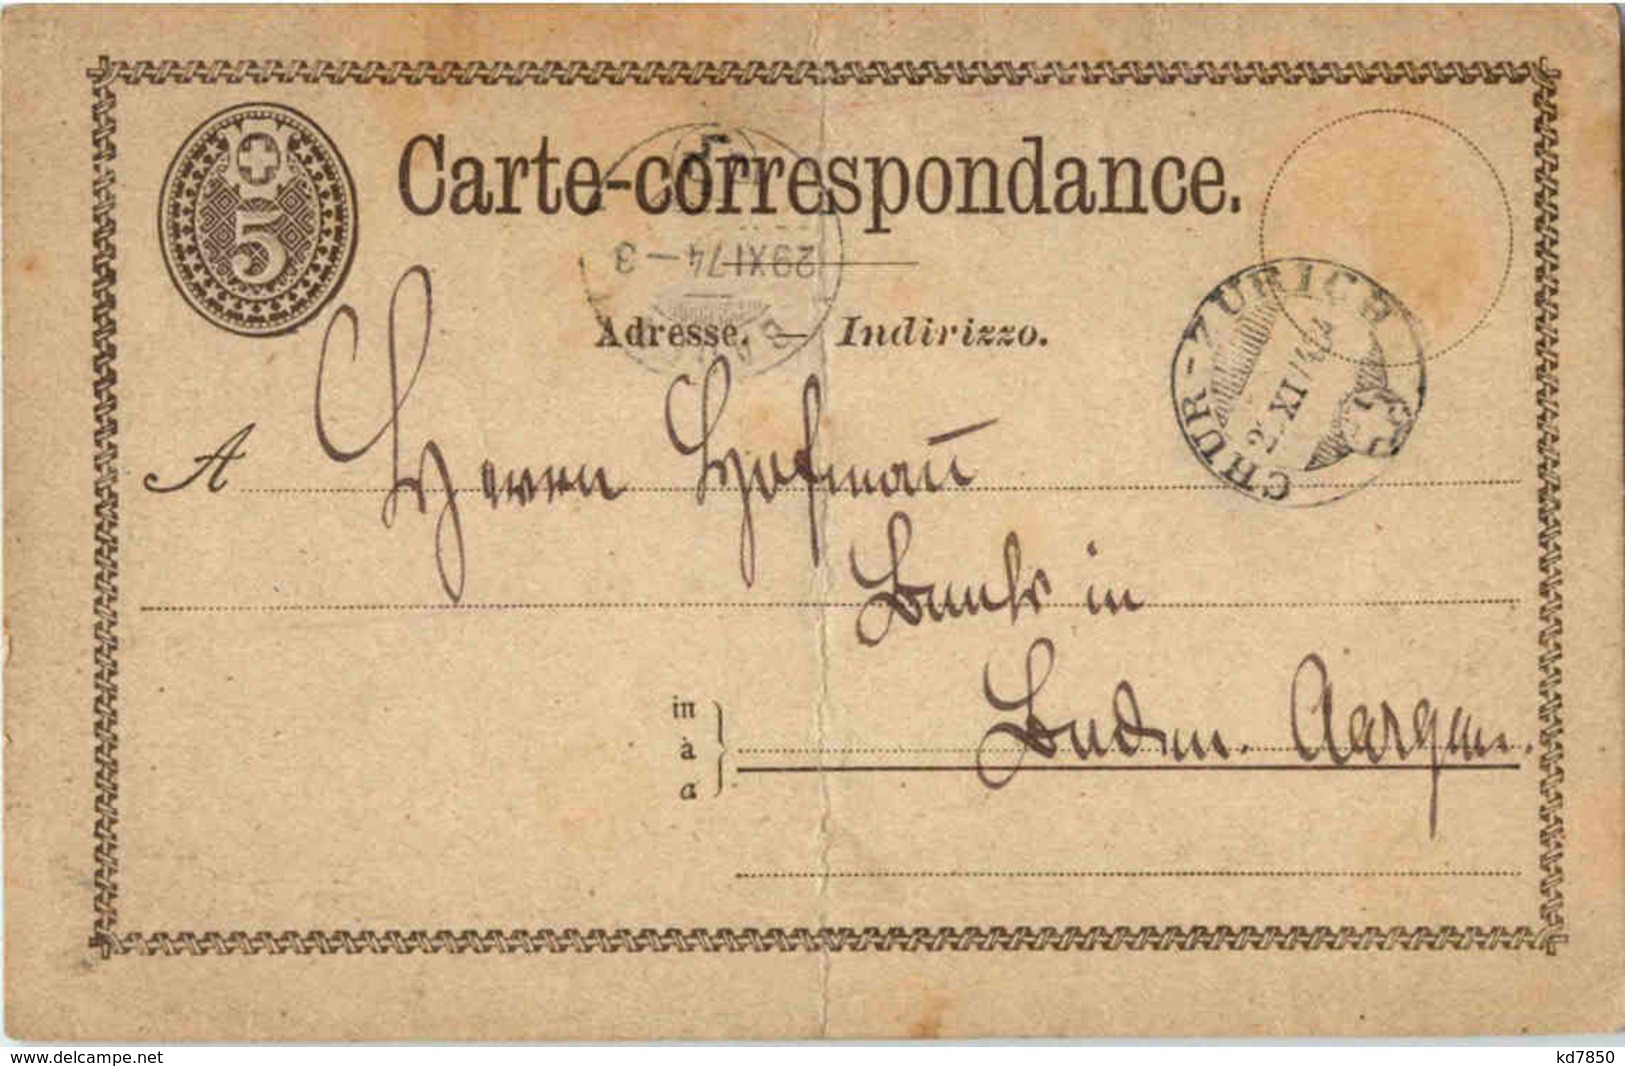 5
Carte-correspondance.
29 XI 74 — 3
Adresse. — Indirizzo.
CHUR-ZURICH
XI 74
A Herrn Hofmann
Bank in
in
à
a
Baden. Aargau.
www.delcampe.net
kd7850